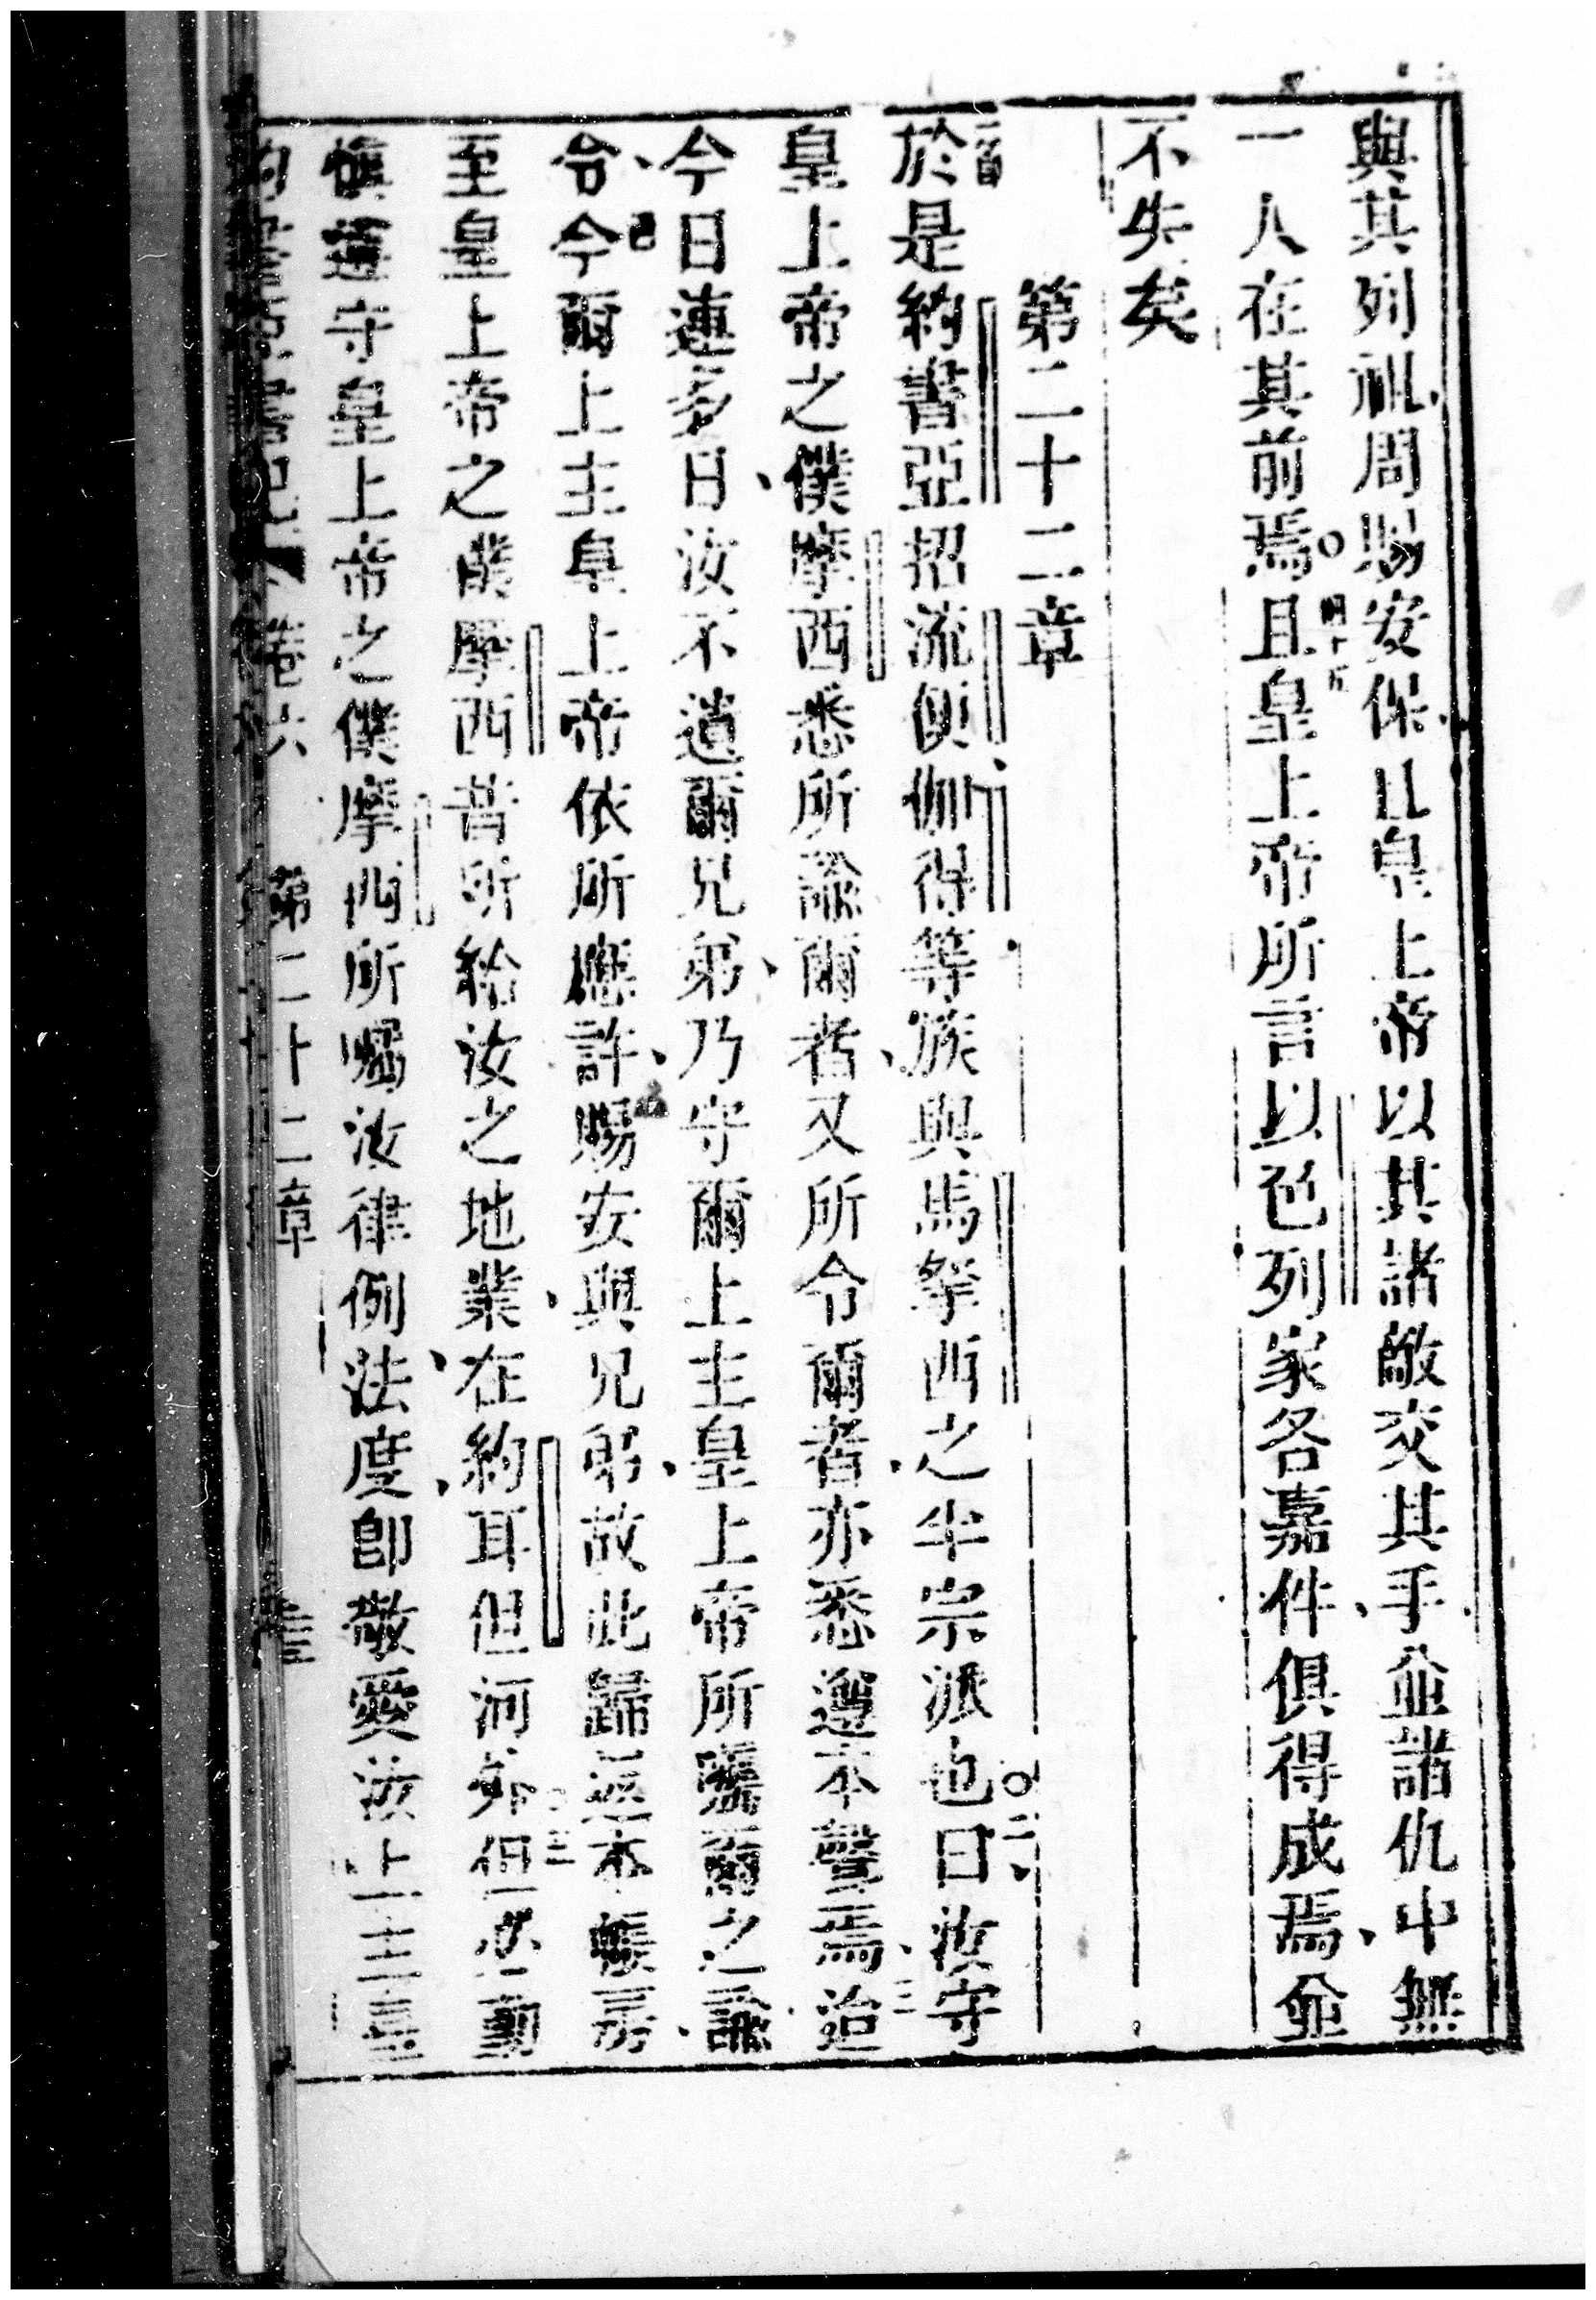 與其列祖周賜安保且皇上帝以其諸敵交其手並諸仇中無
一人在其前焉○四十五且皇上帝所言以色列家各嘉件俱得成焉並
不失矣
第二十二章
一節於是約書亞招流便伽得等族與馬拏西之半宗派也○二曰汝守
皇上帝之僕摩西悉所諭爾者又所令爾者亦悉遵本聲焉三迨
今日連多日汝不遺爾兄弟乃守爾上主皇上帝所囑爾之諭
令四今爾上主皇上帝依所應許賜安與兄弟故此歸返本帳房
至皇上帝之僕摩西昔所給汝之地業在約耳但河外五但必勤
慎遵守皇上帝之僕摩西所囑汝律例法度即敬愛汝上主皇
卷六 第二十二章